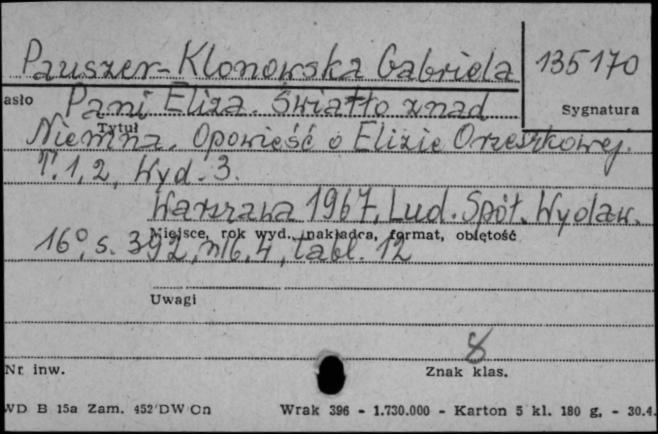 Pauszer-Klonowska Gabriela 135170
asło Pani Eliza. Światło znad Sygnatura
Tytuł
Niemna. Opowieść o Elizie Orzeszkowej.
T. 1, 2, Wyd. 3.
Warszawa 1967, Lud. Spół. Wydaw.
Miejsce, rok wyd., nakładca, format, objętość
16°, s. 392, nlb. 4, tabl. 12
Uwagi
8
Nr inw. Znak klas.
WD B 15a Zam. 452/DW On Wrak 396 - 1.730.000 - Karton 5 kl. 180 g. - 30.4.